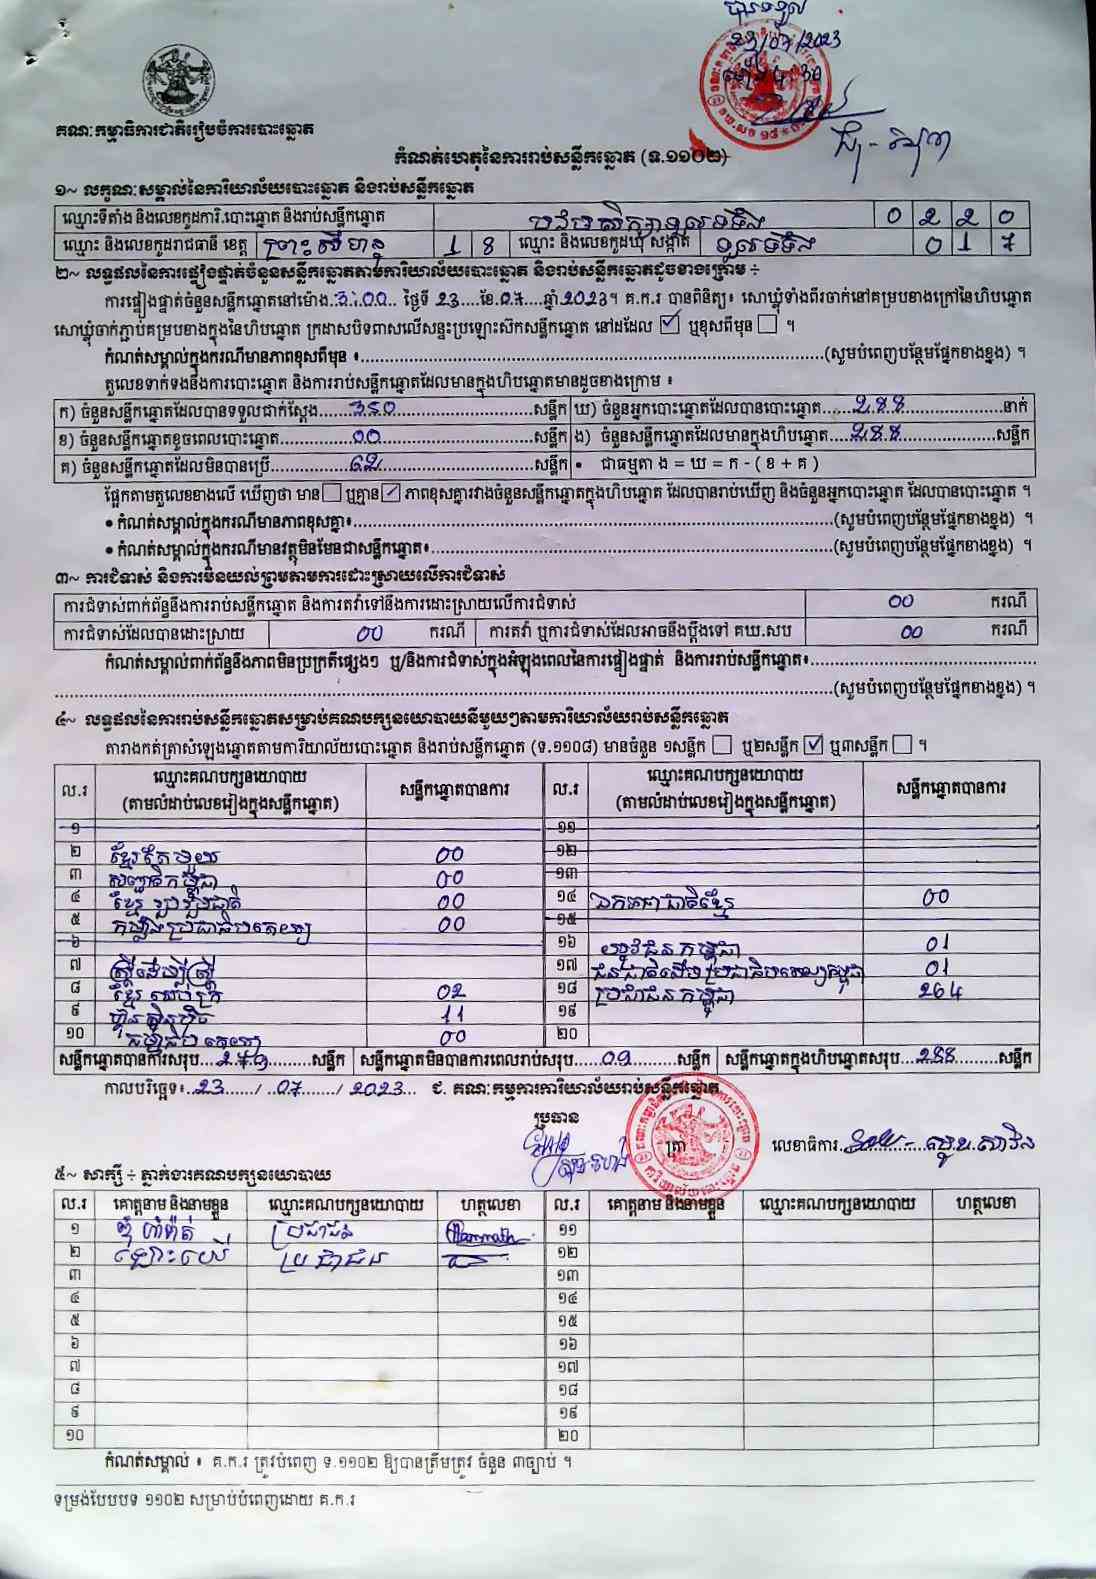 បានទទួល
23/07/2023
គណៈកម្មាធិការជាតិរៀបចំការបោះឆ្នោត
កំណត់ហេតុនៃការរាប់សន្លឹកឆ្នោត (ទ.១១០២)
១~ លក្ខណៈសម្គាល់នៃការិយាល័យបោះឆ្នោត និងរាប់សន្លឹកឆ្នោត
ឈ្មោះទីតាំង និងលេខកូដការិ.បោះឆ្នោត និងរាប់សន្លឹកឆ្នោត 0 2 2 0
ឈ្មោះ និងលេខកូដរាជធានី ខេត្ត ព្រះសីហនុ 1 8 ឈ្មោះ និងលេខកូដឃុំ សង្កាត់ ទួលទទឹង 0 1 7
២~ លទ្ធផលនៃការផ្ទៀងផ្ទាត់ចំនួនសន្លឹកឆ្នោតតាមការិយាល័យបោះឆ្នោត និងរាប់សន្លឹកឆ្នោតដូចខាងក្រោម ÷
ការផ្ទៀងផ្ទាត់ចំនួនសន្លឹកឆ្នោតនៅម៉ោង..3:00... ថ្ងៃទី 23....ខែ.07....ឆ្នាំ 2023។ គ.ក.រ បានពិនិត្យ៖ សោឃ្លុំទាំងពីរចាក់នៅគម្របខាងក្រៅនៃហិបឆ្នោត
សោឃ្លុំចាក់ភ្ជាប់គម្របខាងក្នុងនៃហិបឆ្នោត ក្រដាសបិទពាសលើសន្ទះប្រឡោះស៊កសន្លឹកឆ្នោត នៅដដែល ☑ ឬខុសពីមុន ☐ ។
កំណត់សម្គាល់ក្នុងករណីមានភាពខុសពីមុន ៖......(សូមបំពេញបន្ថែមផ្នែកខាងខ្នង) ។
តួលេខទាក់ទងនឹងការបោះឆ្នោត និងការរាប់សន្លឹកឆ្នោតដែលមានក្នុងហិបឆ្នោតមានដូចខាងក្រោម ៖
ក) ចំនួនសន្លឹកឆ្នោតដែលបានទទួលជាក់ស្តែង......350......សន្លឹក ឃ) ចំនួនអ្នកបោះឆ្នោតដែលបានបោះឆ្នោត......288......នាក់
ខ) ចំនួនសន្លឹកឆ្នោតខូចពេលបោះឆ្នោត......00......សន្លឹក ង) ចំនួនសន្លឹកឆ្នោតដែលមានក្នុងហិបឆ្នោត...288......សន្លឹក
គ) ចំនួនសន្លឹកឆ្នោតដែលមិនបានប្រើ......62......សន្លឹក • ជាធម្មតា ង = ឃ = ក - ( ខ + គ )
ផ្អែកតាមតួលេខខាងលើ ឃើញថា មាន ☐ ឬគ្មាន ☑ ភាពខុសគ្នារវាងចំនួនសន្លឹកឆ្នោតក្នុងហិបឆ្នោត ដែលបានរាប់ឃើញ និងចំនួនអ្នកបោះឆ្នោត ដែលបានបោះឆ្នោត ។
• កំណត់សម្គាល់ក្នុងករណីមានភាពខុសគ្នា៖......(សូមបំពេញបន្ថែមផ្នែកខាងខ្នង) ។
• កំណត់សម្គាល់ក្នុងករណីមានវត្ថុមិនមែនជាសន្លឹកឆ្នោត៖......(សូមបំពេញបន្ថែមផ្នែកខាងខ្នង) ។
៣~ ការជំទាស់ និងការមិនយល់ព្រមតាមការដោះស្រាយលើការជំទាស់
ការជំទាស់ពាក់ព័ន្ធនឹងការរាប់សន្លឹកឆ្នោត និងការតវ៉ាទៅនឹងការដោះស្រាយលើការជំទាស់ 00 ករណី
ការជំទាស់ដែលបានដោះស្រាយ 00 ករណី ការតវ៉ា ឬការជំទាស់ដែលអាចនឹងប្តឹងទៅ គឃ.សប 00 ករណី
កំណត់សម្គាល់ពាក់ព័ន្ធនឹងភាពមិនប្រក្រតីផ្សេងៗ ឬ/និងការជំទាស់ក្នុងអំឡុងពេលនៃការផ្ទៀងផ្ទាត់ និងការរាប់សន្លឹកឆ្នោត៖......
......(សូមបំពេញបន្ថែមផ្នែកខាងខ្នង) ។
៤~ លទ្ធផលនៃការរាប់សន្លឹកឆ្នោតសម្រាប់គណបក្សនយោបាយនីមួយៗតាមការិយាល័យរាប់សន្លឹកឆ្នោត
តារាងកត់ត្រាសំឡេងឆ្នោតតាមការិយាល័យបោះឆ្នោត និងរាប់សន្លឹកឆ្នោត (ទ.១១០៨) មានចំនួន ១សន្លឹក ☐ ឬ២សន្លឹក ☑ ឬ៣សន្លឹក ☐ ។
ល.រ ឈ្មោះគណបក្សនយោបាយ (តាមលំដាប់លេខរៀងក្នុងសន្លឹកឆ្នោត) សន្លឹកឆ្នោតបានការ ល.រ ឈ្មោះគណបក្សនយោបាយ (តាមលំដាប់លេខរៀងក្នុងសន្លឹកឆ្នោត) សន្លឹកឆ្នោតបានការ
១ ១១
២ ខ្មែរតែមួយ 00 ១២
៣ សញ្ជាតិកម្ពុជា 00 ១៣
៤ ខ្មែររួបរួមជាតិ 00 ១៤ ឯកភាពជាតិខ្មែរ 00
៥ កម្លាំងប្រជាធិបតេយ្យ 00 ១៥
៦ ១៦ យុវជនកម្ពុជា 01
៧ ស្ត្រីដើម្បីស្ត្រី ១៧ ជនជាតិដើមប្រជាធិបតេយ្យកម្ពុជា 01
៨ ខ្មែរអភិវឌ្ឍន៍ 02 ១៨ ប្រជាជនកម្ពុជា 264
៩ ហ៊្វុនស៊ិនប៉ិច 11 ១៩
១០ 00 ២០
សន្លឹកឆ្នោតបានការសរុប...279......សន្លឹក សន្លឹកឆ្នោតមិនបានការពេលរាប់សរុប...09......សន្លឹក សន្លឹកឆ្នោតក្នុងហិបឆ្នោតសរុប...288......សន្លឹក
កាលបរិច្ឆេទ៖..23....../..07....../ 2023... ជ. គណៈកម្មការការិយាល័យរាប់សន្លឹកឆ្នោត
ប្រធាន
ត្រា លេខាធិការ
៥~ សាក្សី ÷ ភ្នាក់ងារគណបក្សនយោបាយ
ល.រ គោត្តនាម និងនាមខ្លួន ឈ្មោះគណបក្សនយោបាយ ហត្ថលេខា ល.រ គោត្តនាម និងនាមខ្លួន ឈ្មោះគណបក្សនយោបាយ ហត្ថលេខា
១ ប្រជាជន ១១
២ ប្រជាជន ១២
៣ ១៣
៤ ១៤
៥ ១៥
៦ ១៦
៧ ១៧
៨ ១៨
៩ ១៩
១០ ២០
កំណត់សម្គាល់ ៖ គ.ក.រ ត្រូវបំពេញ ទ.១១០២ ឱ្យបានត្រឹមត្រូវ ចំនួន ៣ច្បាប់ ។
ទម្រង់បែបបទ ១១០២ សម្រាប់បំពេញដោយ គ.ក.រ